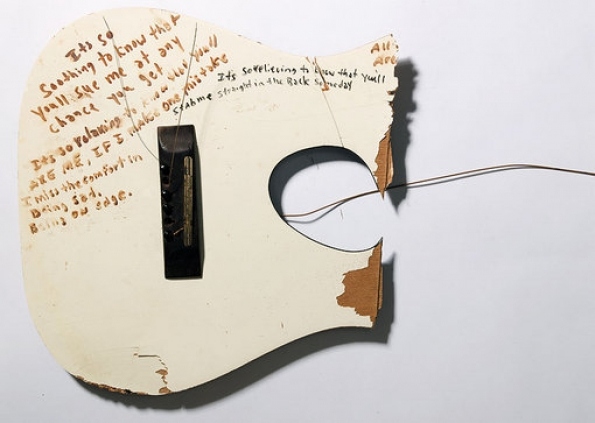 Its so
Soothing to know that
Youll Sue me at any
chance you get
Its so relaxing to know that youll
ME, IF I make one mistake
I miss the comfort in
Being Sad.
Being on edge.
Its so relieving to know that youll
stab me straight in the Back Someday
All
Are